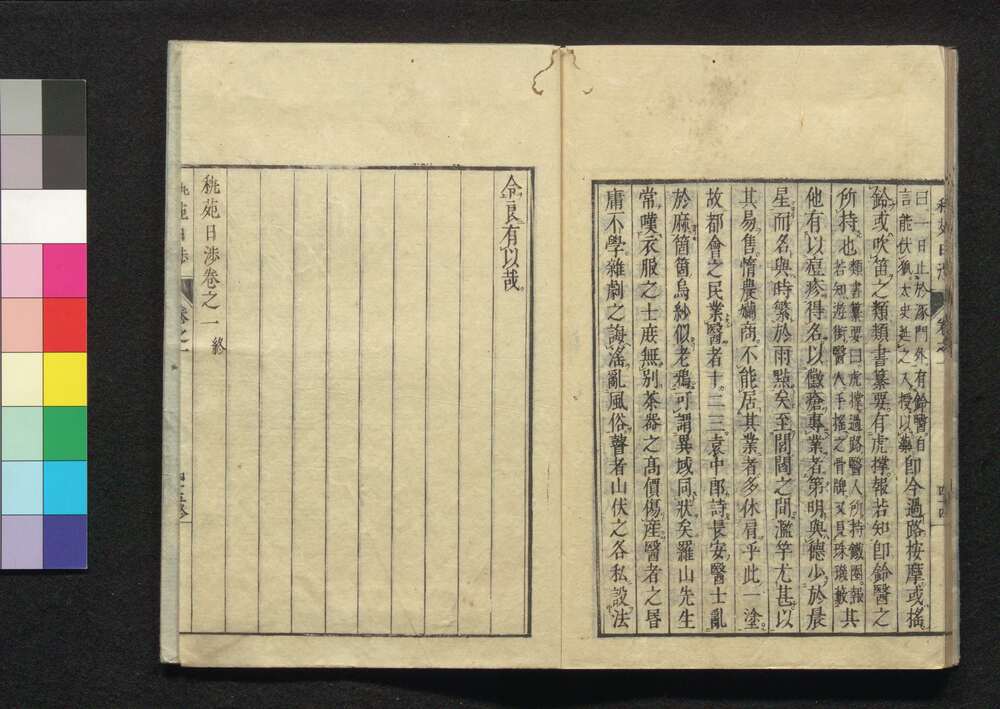 曰一日止於家門外有鈴醫自
言能伏狐太史延之入授以藥即今過路按摩或搖
鈴或吹笛之類類書纂要有虎撑報君知即鈴醫之
所持也類書纂要曰虎撑過路醫人所持鐵圈報
君知遊街醫人手搖之骨牌又見珠璣藪其
他有以痘疹得名以黴瘡專業者第明與德少於晨
星而名與時繁於雨點矣至閭閻之間濫竽尤甚以
其易售惰農嬾商不能居其業者多休肩乎此一塗
故都會之民業醫者十二三袁中郎詩長安醫士亂
於麻箇箇烏紗似老鴉可謂異域同狀矣羅山先生
常嘆衣服之士庶無別茶器之高價傷産醫者之昬
庸不學雜劇之誨滛亂風俗瞽者山伏之各私設法
令良有以哉
秇苑日渉卷之一終
秇苑日渉
卷之一